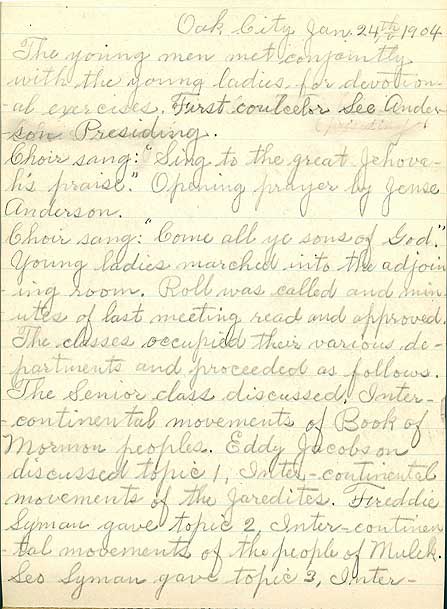 Oak City, Jan. 24,th 1904
The young men met conjointly
with the young ladies, for devotion-
-al exercises. First coulceler Leo Ander-
son Presiding.
Choir sang: "Sing to the great Jehova-
h's praise." Opening prayer by Jense
Anderson.
Choir sang: "Come all ye sons of God."
Young ladies marched into the adjoin-
-ing room. Roll was called and min-
utes of last meeting read and approved.
The classes occupied their various de-
partments and proceeded as follows.
The Senior class discussed: Inter-
-continental movements of Book of
Mormon peoples. Eddy Jacobson
discussed topic 1, Inter-continental
movements of the Jaredites. Freddie
Lyman gave topic 2, Inter-continen
-tal movements of the people of Mulek.
Leo Lyman gave topic 3, Inter-